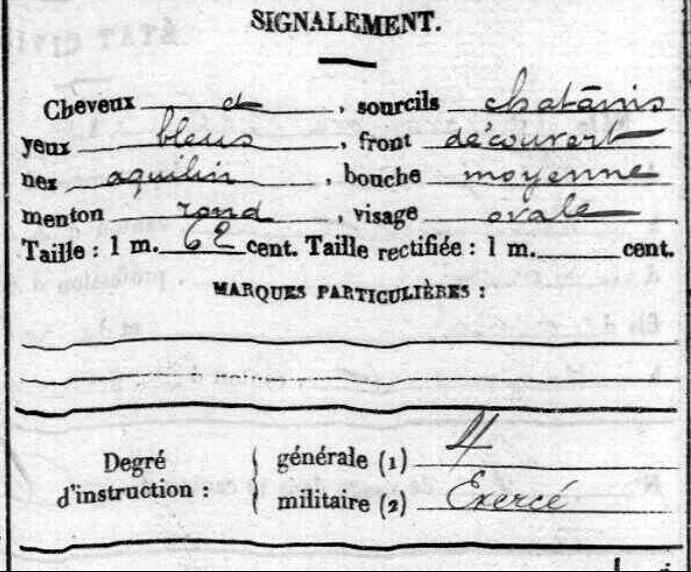 SIGNALEMENT.
Cheveux et, sourcils chatains
yeux bleus, front découvert
nez aquilin, bouche moyenne
menton rond, visage ovale
Taille : 1 m. 62 cent. Taille rectifiée : 1 m. cent.
MARQUES PARTICULIÈRES :
Degré d'instruction :
générale (1)
militaire (2) Exercé